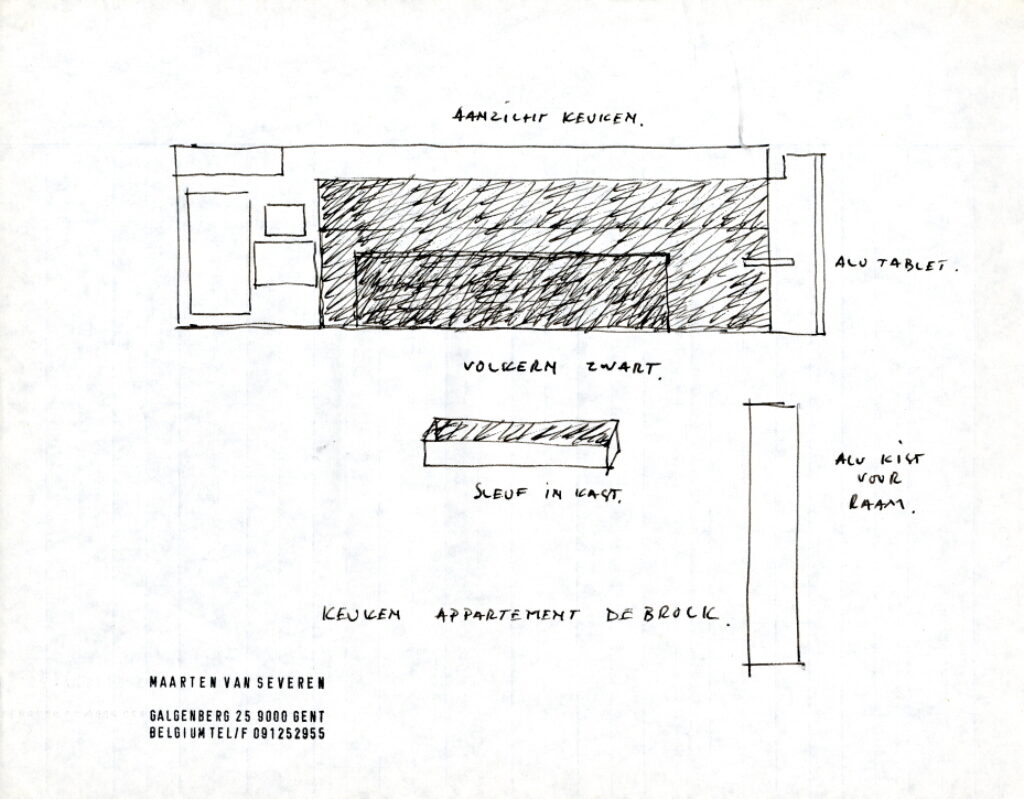 AANZICHT KEUKEN.
ALU TABLET.
VOLKERN ZWART.
ALU KIST
VOOR
RAAM.
SLEUF IN KAST.
KEUKEN APPARTEMENT DE BROCK.
MAARTEN VAN SEVEREN
GALGENBERG 25 9000 GENT
BELGIUM TEL/F 091252955